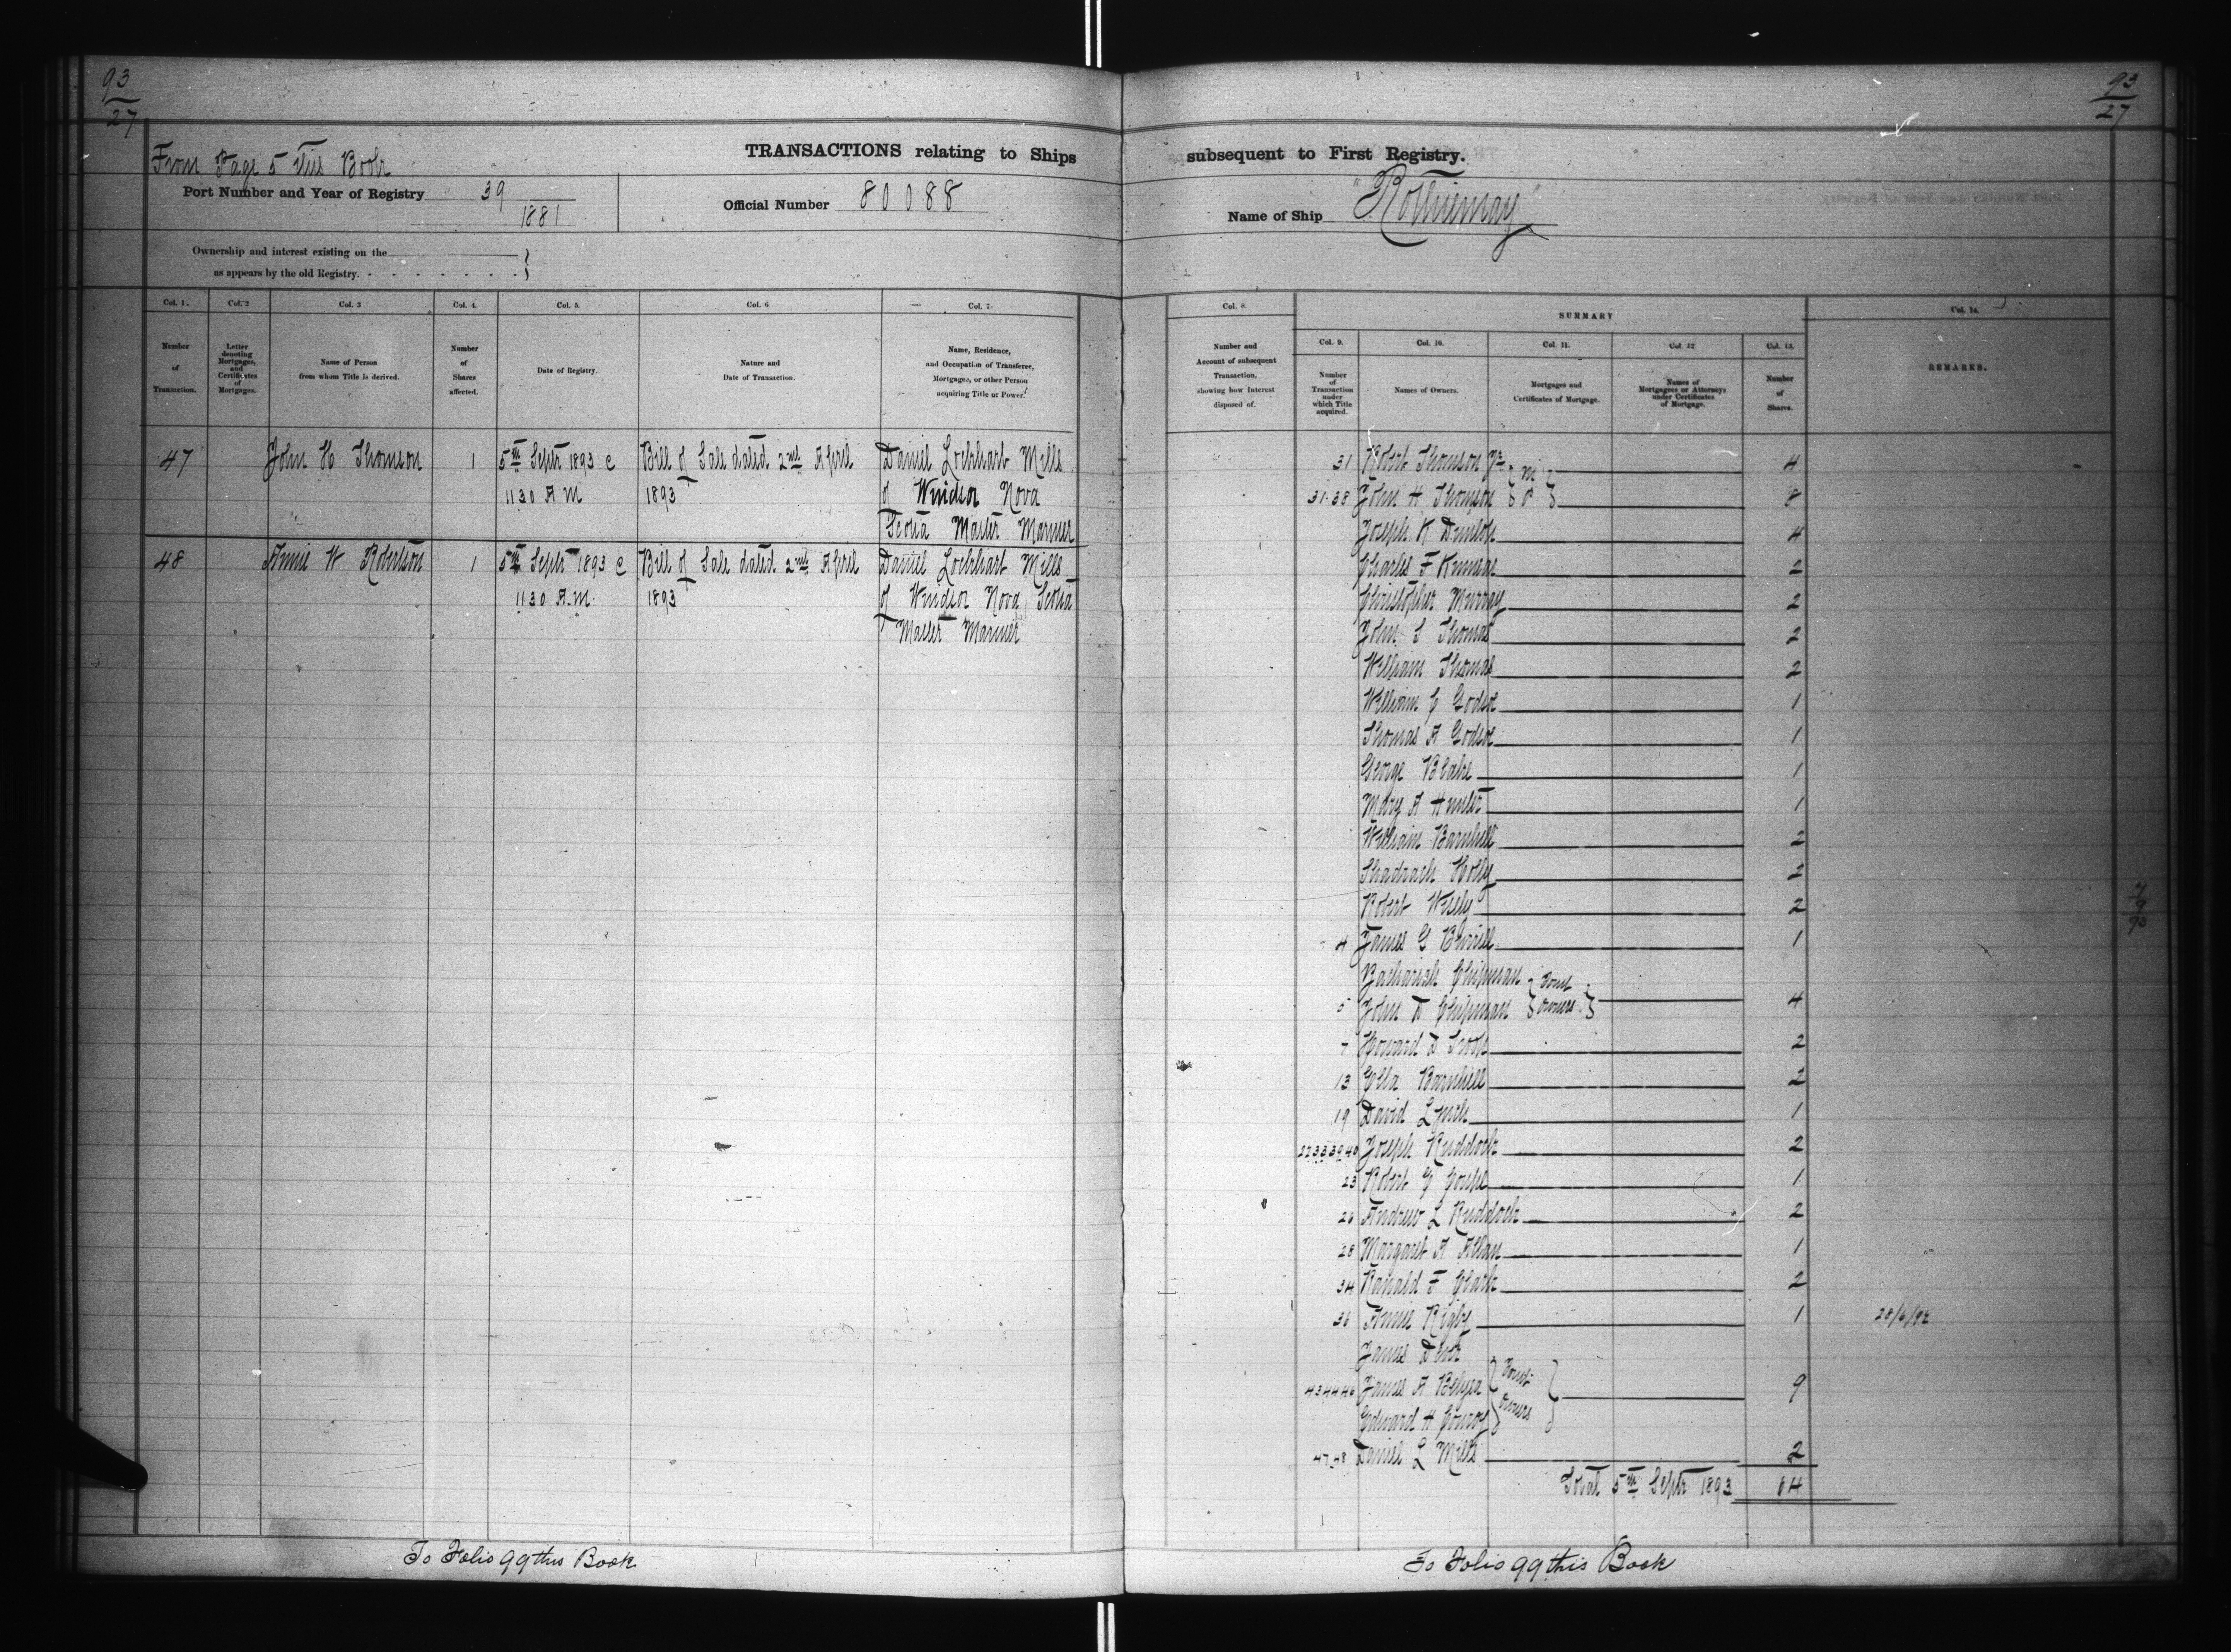 93
27
93
27
From Page 5 this Book
TRANSACTIONS relating to Ships subsequent to First Registry.
Port Number and Year of Registry 39
1881
Official Number 80088
Name of Ship "Rothiemay"
Ownership and interest existing on the
as appears by the old Registry.
Col. 1.
Number
of
Transaction.
Col. 2
Letter
denoting
Mortgages,
and
Certificates
of
Mortgages.
Col. 3
Name of Person
from whom Title is derived.
Col. 4.
Number
of
Shares
affected.
Col. 5.
Date of Registry.
Col. 6
Nature and
Date of Transaction.
Col. 7
Name, Residence,
and Occupation of Transferee,
Mortgagee, or other Person
acquiring Title or Power.
Col. 8.
Number and
Account of subsequent
Transaction,
showing how Interest
disposed of.
SUMMARY
Col. 9.
Number
of
Transaction
under
which Title
acquired.
Col. 10.
Names of Owners.
Col. 11.
Mortgages and
Certificates of Mortgage.
Col. 12
Names of
Mortgagees or Attorneys
under Certificates
of Mortgage.
Col. 13.
Number
of
Shares.
Col. 14.
REMARKS.
47 John H Thomson 1 5th Septr 1893 @ Bill of Sale dated 2nd April Daniel Lockhart Mills
1130 A M 1893 of Windsor Nova
Scotia Master Mariner
48 Annie W Robertson 1 5th Septr 1893 @ Bill of Sale dated 2nd April Daniel Lockhart Mills
1130 A.M. 1893 of Windsor Nova Scotia
Master Mariner
31 Robert Thomson Jr 4
31.38 John H Thomson 8
Joseph R Dunlop 4
Charles F Kinnear 2
Christopher Murray 2
John S Thomas 2
William Thomas 2
William C Godsoe 1
Thomas A Godsoe 1
George Blake 1
Mary A Hunter 1
William Barnhill 2
Shadrach Holly 2
Robert Wisely 2
4 James G 1
Zachariah Chipman
5 John D Chipman Joint Owners 4
7 Howard D Troop 2
13 Ella Barnhill 2
19 David Lynch 1
22 33 39 40 Joseph Ruddock 2
23 Robert G 1
26 Andrew L Ruddock 2
28 Margaret A Allan 1
34 Ranald F Clark 2
36 Annie Rigby 1 28/6/92
James
43 44 46 James A Belyea Joint Owners 9
Edward H Conroy
47.48 Daniel L Mills 2
Total 5th Septr 1893 64
To Folio 99 this Book
To Folio 99 this Book